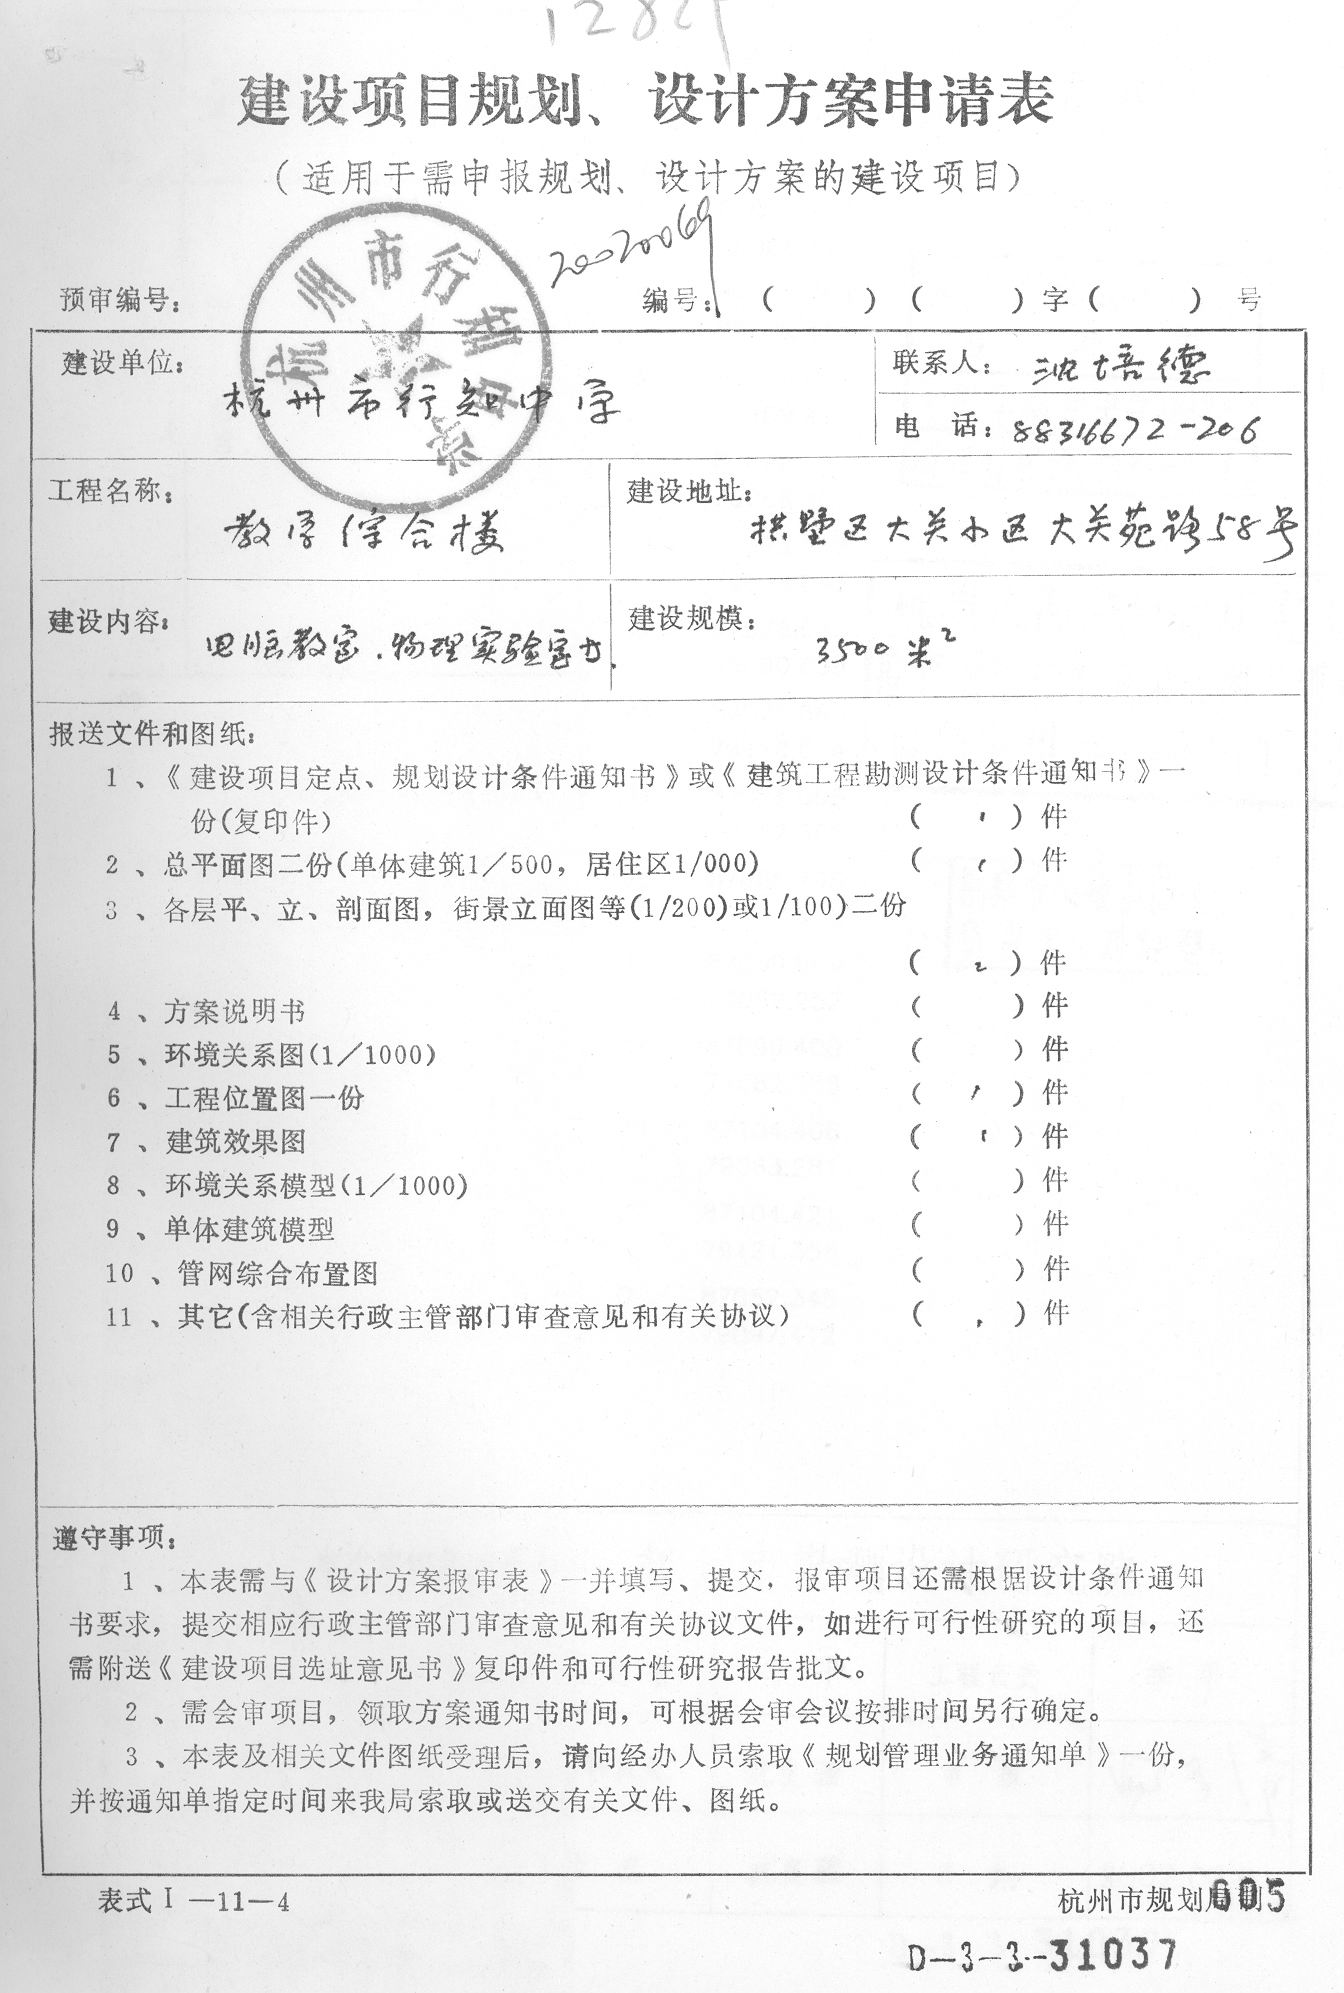 建设项目规划、设计方案申请表
(适用于需申报规划、设计方案的建设项目)
20020069
预审编号: 编号: ( ) ( )字( ) 号
杭州市行知中学
建设单位: 杭州市行知中学
联系人: 沈培德
电 话: 88316672-206
工程名称: 教学综合楼
建设地址: 拱墅区大关小区大关苑路58号
建设内容: 电脑教室.物理实验室等.
建设规模: 3500米²
报送文件和图纸:
1、《建设项目定点、规划设计条件通知书》或《建筑工程勘测设计条件通知书》一
份(复印件) ( 1 )件
2、总平面图二份(单体建筑1/500,居住区1/000) ( 1 )件
3、各层平、立、剖面图,街景立面图等(1/200)或1/100)二份
( 2 )件
4、方案说明书 ( )件
5、环境关系图(1/1000) ( )件
6、工程位置图一份 ( 1 )件
7、建筑效果图 ( 1 )件
8、环境关系模型(1/1000) ( )件
9、单体建筑模型 ( )件
10、管网综合布置图 ( )件
11、其它(含相关行政主管部门审查意见和有关协议) ( )件
遵守事项:
1、本表需与《设计方案报审表》一并填写、提交,报审项目还需根据设计条件通知
书要求,提交相应行政主管部门审查意见和有关协议文件,如进行可行性研究的项目,还
需附送《建设项目选址意见书》复印件和可行性研究报告批文。
2、需会审项目,领取方案通知书时间,可根据会审会议按排时间另行确定。
3、本表及相关文件图纸受理后,请向经办人员索取《规划管理业务通知单》一份,
并按通知单指定时间来我局索取或送交有关文件、图纸。
表式Ⅰ—11—4
杭州市规划局制
005
D—3—3—31037